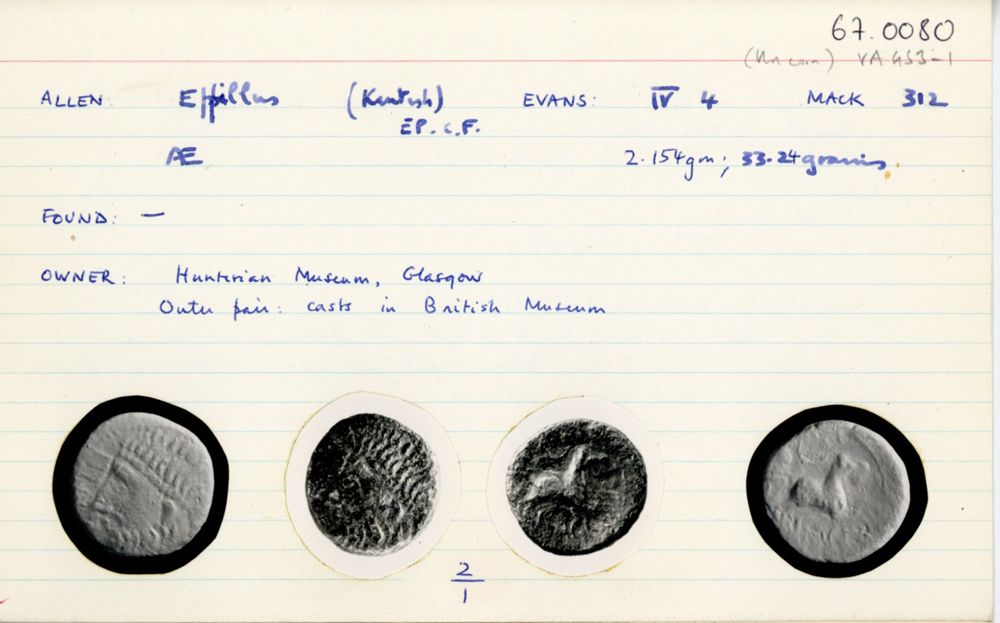 67.0080
VA 453-1
ALLEN Eppillus (Kentish) EVANS: IV 4 MACK 312
EP. C. F.
AE 2.154gm; 33.24grains.
FOUND: —
OWNER: Hunterian Museum, Glasgow
Outer pair: casts in British Museum
2
1